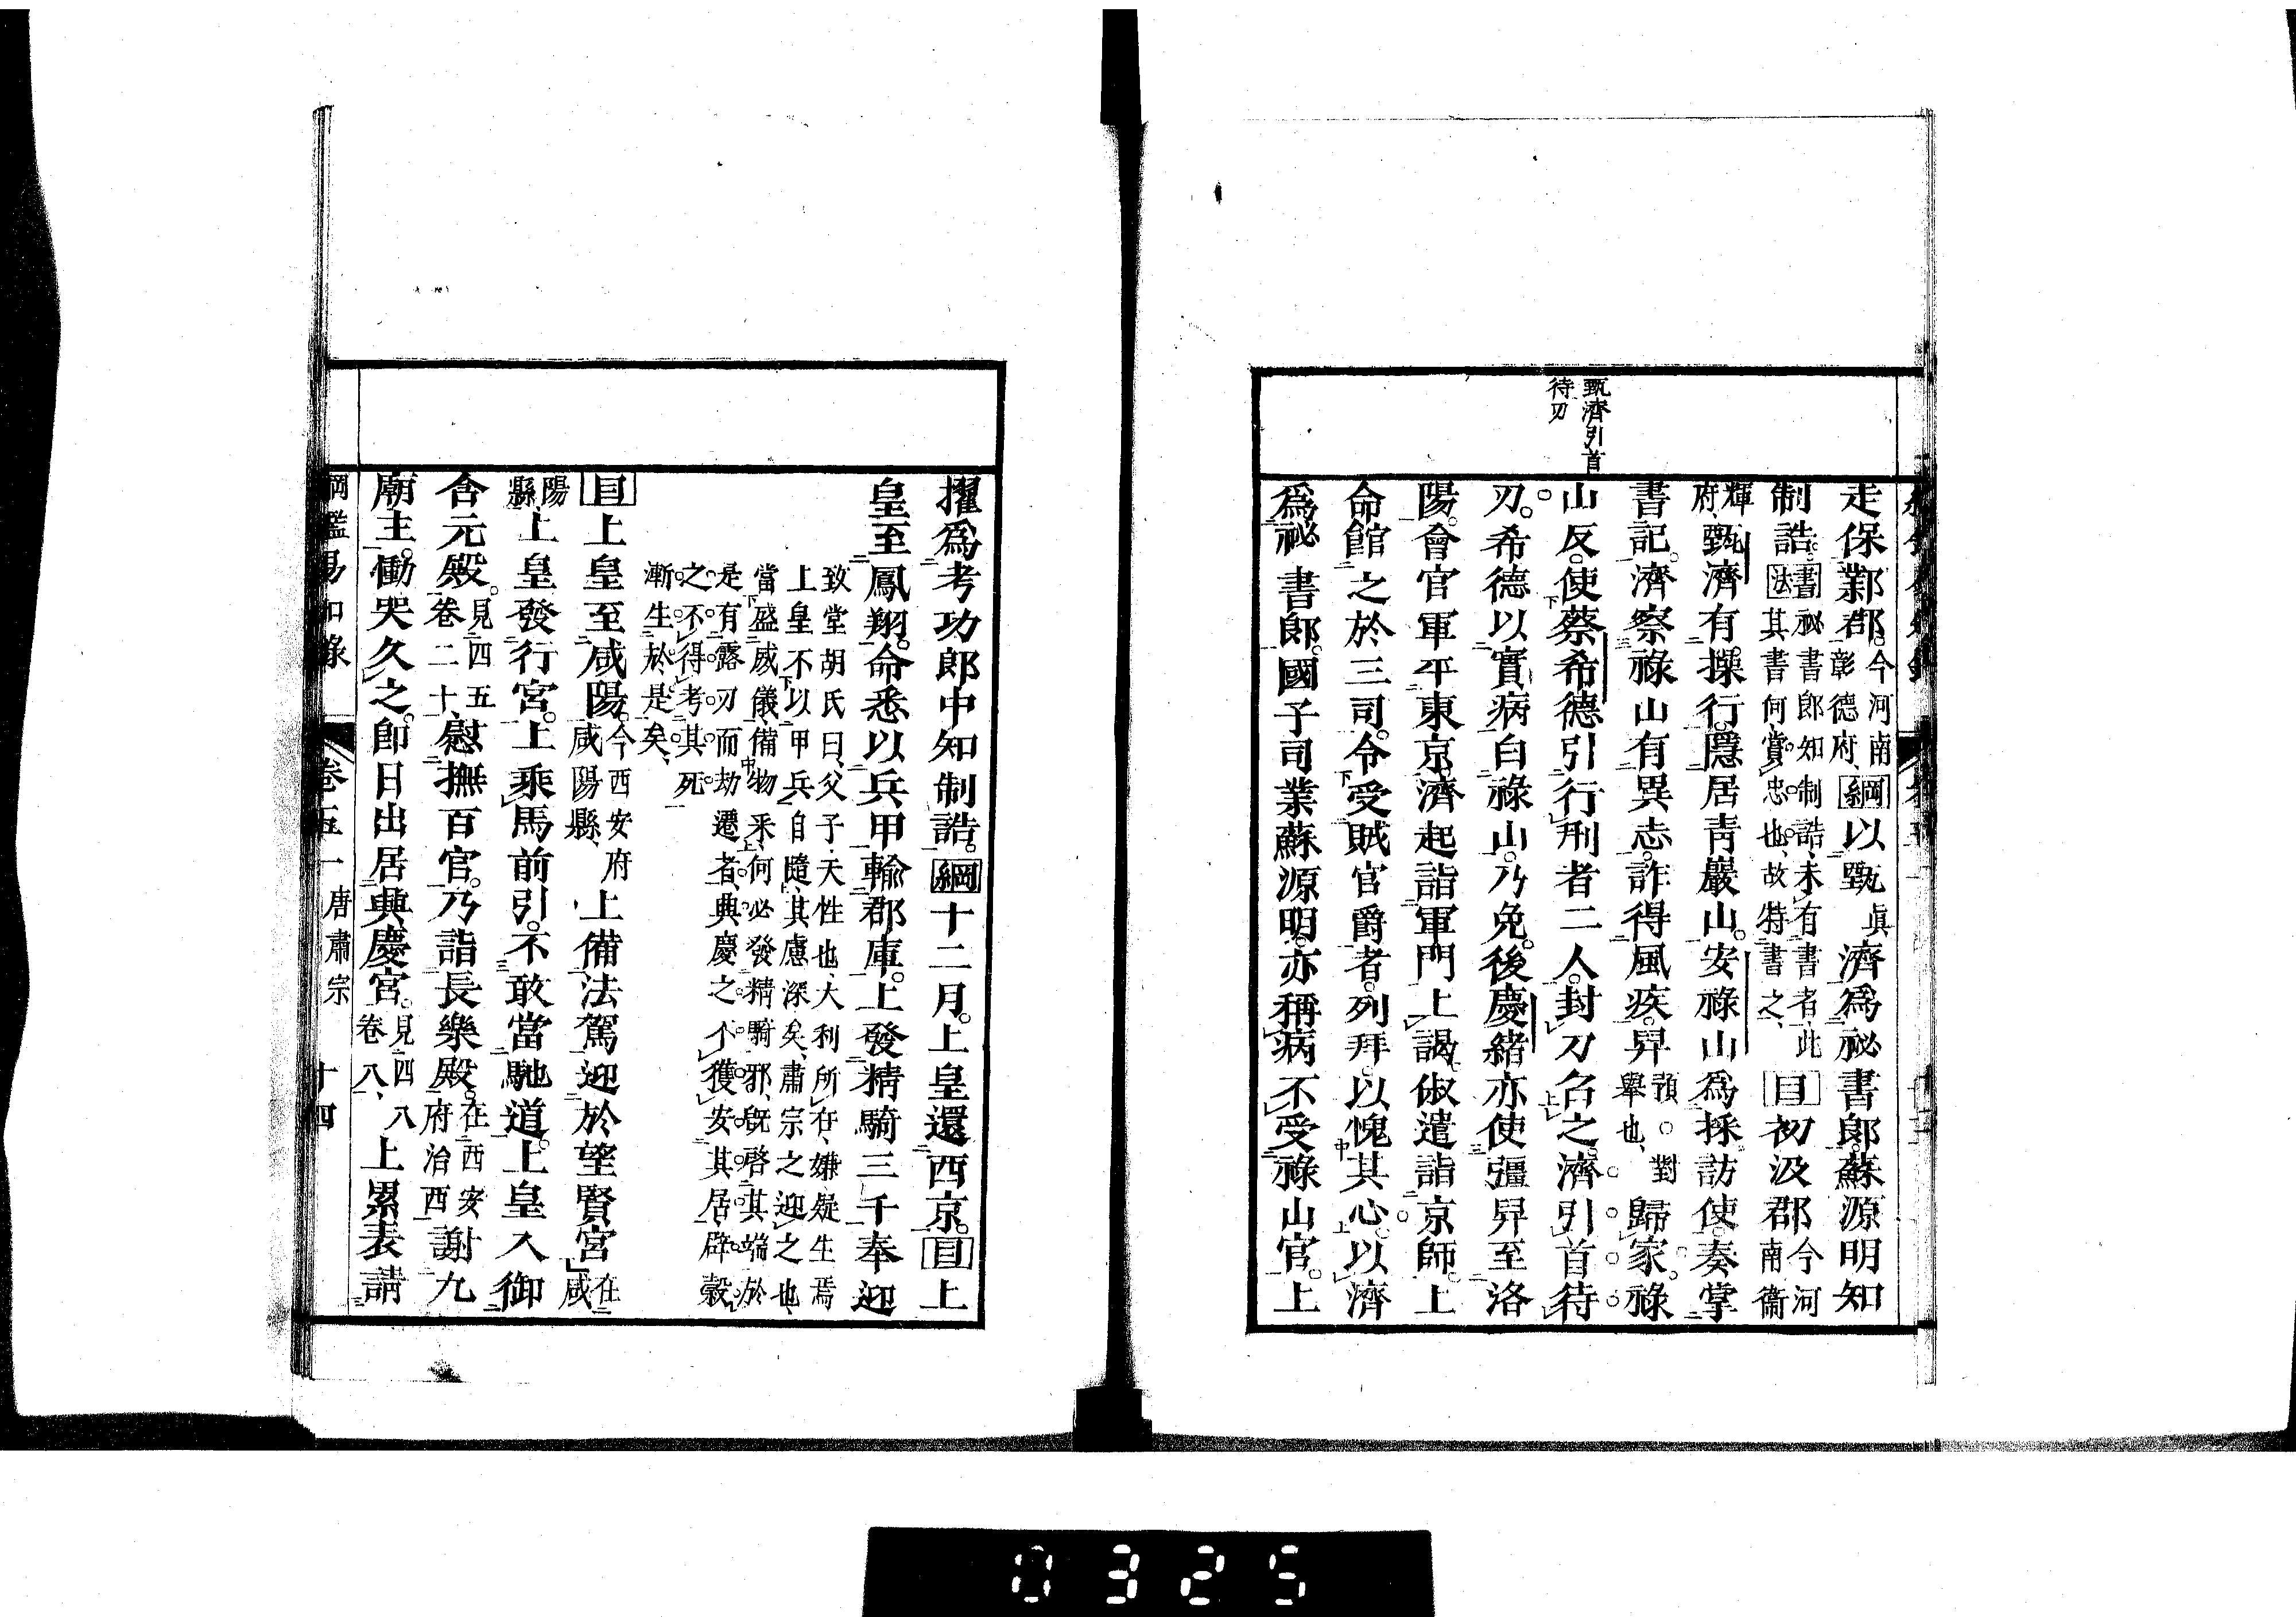 甄濟引首
待刃
走保鄴郡。今河南彰德府、綱以甄眞濟爲祕書郎。蘇源明知
制誥。書法祕書郎知制誥、未有書者、此其書何、賞忠也、故特書之、目初汲郡今河南衞
輝府、甄濟有操行。隱居靑巖山。安祿山爲採訪使。奏掌
書記。濟察祿山有異志。詐得風疾。舁預。對舉也、歸家。祿
山反。使蔡希德引行刑者二人。封刀召之。濟引首待
刃。希德以實病白祿山。乃免。後慶緖亦使彊舁至洛
陽。會官軍平東京。濟起詣軍門上謁。俶遣詣京師。上
命館之於三司。令受賊官爵者。列拜。以愧其心。以濟
爲祕書郎。國子司業蘇源明。亦稱病不受祿山官。上
擢爲考功郎中知制誥。綱十二月。上皇還西京。目上
皇至鳳翔。命悉以兵甲輸郡庫。上發精騎三千奉迎
致堂胡氏曰、父子、天性也、大利所在、嫌疑生焉
上皇不以甲兵自隨、其慮深矣、肅宗之迎之也、
當盛威儀、備物釆、何必發精騎邪、旣啓其端於
是有露刃而劫遷者、興慶之不獲安其居、辟穀
之不得考其死
漸生於是矣、
目上皇至咸陽。今西安府咸陽縣、上備法駕迎於望賢宮在咸
陽縣、上皇發行宮。上乘馬前引。不敢當馳道。上皇入御
含元殿。見四五卷二十、慰撫百官。乃詣長樂殿。在西安府治西謝九
廟主。慟哭久之。卽日出居興慶宮。見四八卷八、上累表請
綱鑑易知錄　卷五一　唐肅宗　十四
0325